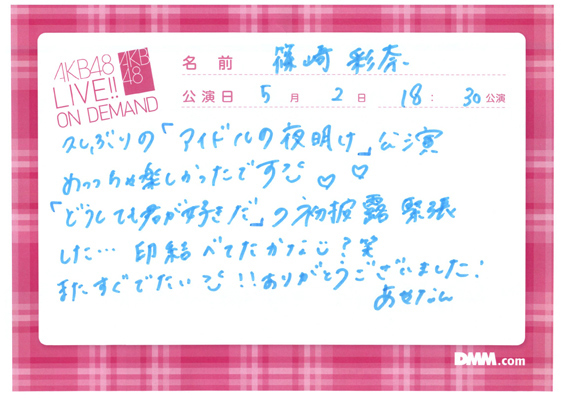 AKB48
LIVE!!
ON DEMAND
AKB
48
名 前 篠崎 彩奈
公演日 5 月 2 日 18 : 30 公演
久しぶりの「アイドルの夜明け」公演
めっちゃ楽しかったです
「どうしても君が好きだ」の初披露 緊張
した… 印結べてたかな ? 笑
またすぐでたい !! ありがとうございました!
あやなん
DMM.com